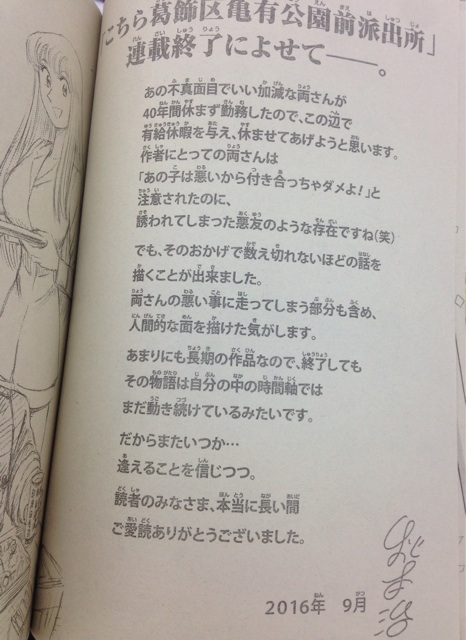 こちら葛飾区亀有公園前派出所」
連載終了によせて――。
あの不真面目でいい加減な両さんが
40年間休まず勤務したので、この辺で
有給休暇を与え、休ませてあげようと思います。
作者にとっての両さんは
「あの子は悪いから付き合っちゃダメよ!」と
注意されたのに、
誘われてしまった悪友のような存在ですね(笑)
でも、そのおかげで数え切れないほどの話を
描くことが出来ました。
両さんの悪い事に走ってしまう部分も含め、
人間的な面を描けた気がします。
あまりにも長期の作品なので、終了しても
その物語は自分の中の時間軸では
まだ動き続けているみたいです。
だからまたいつか…
逢えることを信じつつ。
読者のみなさま、本当に長い間
ご愛読ありがとうございました。
2016年 9月